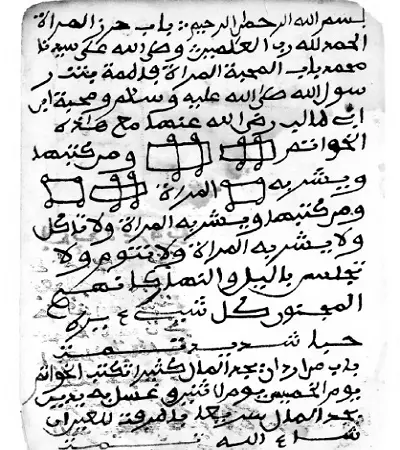 بسم الله الرحمن الرحيم باب حرز المراة
الحمد لله رب العلمين وصلى الله على سيدنا
محمد باب المحبة المراة فاطمة بنت ر
سول الله صلى الله عليه وسلم ومحبة ابن
ابي طالب رضي الله عنهما مع هذه
الخواتم ومن كتبها
ويشربه المراة
ومن كتبها ويشربه المراة ولا تاكل
ولا يشربه المراة ولا تنوم ولا
تجلس باليل والنهار كانها
المجنون كل شيء
حبا شديد تمت
باب من اراد ان يجد المال كثيرا تكتب الخواتم
يوم الخميس يوم لا ثنين وغسل به يديه
يجد المال سريعا
شاء الله تمت